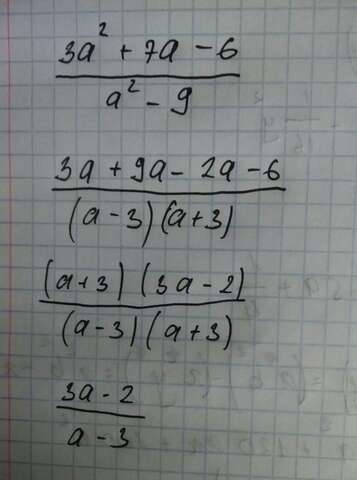 3a² + 7a - 6
a² - 9
3a + 9a - 2a - 6
(a - 3) (a + 3)
(a + 3) (3a - 2)
(a - 3) (a + 3)
3a - 2
a - 3